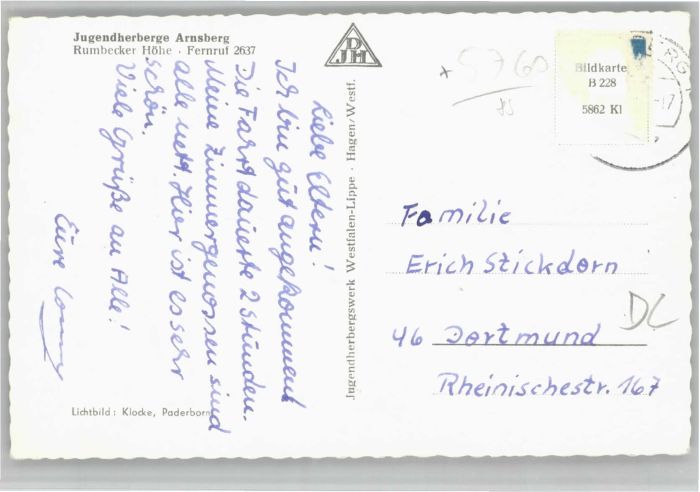 Jugendherberge Arnsberg
Rumbecker Höhe · Fernruf 2637
Liebe Eltern!
Ich bin gut angekommen
Die Fahrt dauerte 2 Stunden.
Meine Zimmergenossen sind
alle nett. Hier ist es sehr
schön.
Viele Grüße an Alle!
Eure
Lichtbild: Klocke, Paderborn
Jugendherbergswerk Westfalen-Lippe · Hagen/Westf.
DJH
5760
Bildkarte
B 228
5862 Kl
ERG
-17
Familie
Erich Stickdorn
46 Dortmund
Rheinischestr. 167
DL